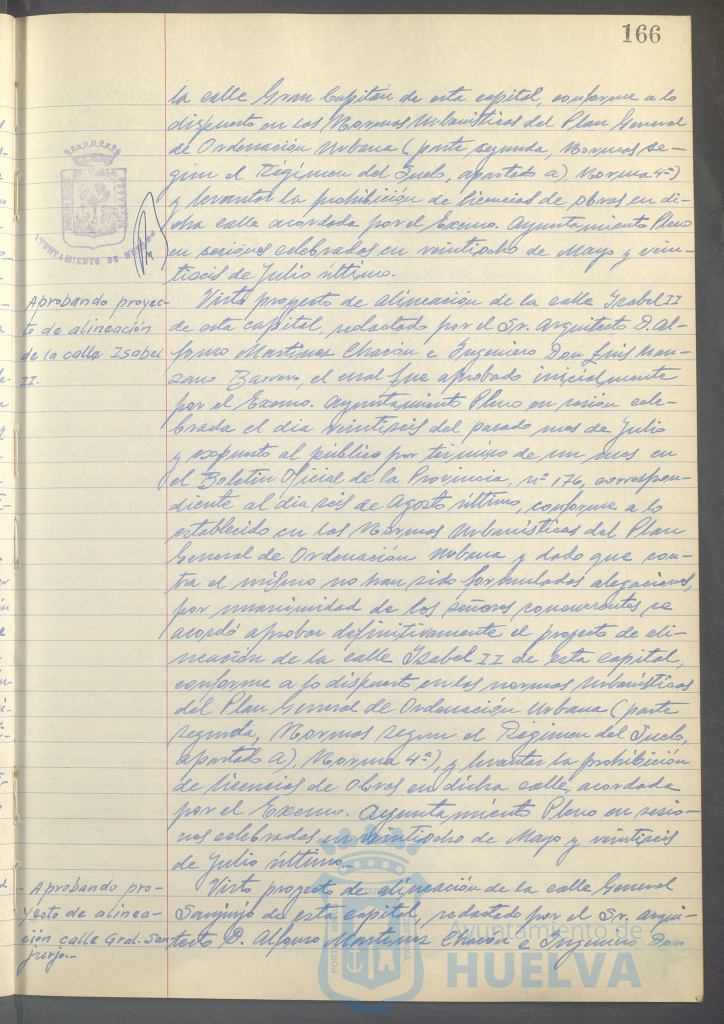 166
la calle Gran Capitán de esta capital, conforme a lo
dispuesto en las Normas Urbanísticas del Plan General
de Ordenación Urbana (parte segunda, Normas se-
gún el Régimen del Suelo, apartado a), Norma 4ª)
y levantar la prohibición de licencias de obras en di-
cha calle acordada por el Excmo. Ayuntamiento Pleno
en sesiones celebradas en veintiocho de Mayo y vein-
tiseis de Julio último.
AYUNTAMIENTO DE HUELVA
Aprobando proyec-
to de alineación
de la calle Isabel
II.
Visto proyecto de alineación de la calle Isabel II
de esta capital, redactado por el Sr. Arquitecto D. Al-
fonso Martinez Chacón e Ingeniero Don Luis Man-
zano Barrero, el cual fue aprobado inicialmente
por el Excmo. Ayuntamiento Pleno en sesión cele-
brada el día veintiseis del pasado mes de Julio
y expuesto al público por término de un mes en
el Boletín Oficial de la Provincia, nº 176, correspon-
diente al dia seis de Agosto último, conforme a lo
establecido en las Normas Urbanísticas del Plan
General de Ordenación Urbana y dado que con-
tra el mismo no han sido formuladas alegaciones,
por unanimidad de los señores concurrentes se
acordó aprobar definitivamente el proyecto de ali-
neación de la calle Isabel II de esta capital,
conforme a lo dispuesto en las normas Urbanísticas
del Plan General de Ordenación Urbana (parte
segunda, Normas segun el Régimen del Suelo,
apartado a), Norma 4ª), y levantar la prohibición
de licencias de Obras en dicha calle, acordada
por el Excmo. Ayuntamiento Pleno en sesio-
nes celebradas en veintiocho de Mayo y veintiseis
de Julio último.-
- Aprobando pro-
yecto de alinea-
ción calle Gral. San
jurjo.-
Visto proyecto de alineación de la calle General
Sanjurjo de esta capital, redactado por el Sr. Arqui-
tecto D. Alfonso Martinez Chacón e Ingeniero Don
Ayuntamiento de
HUELVA